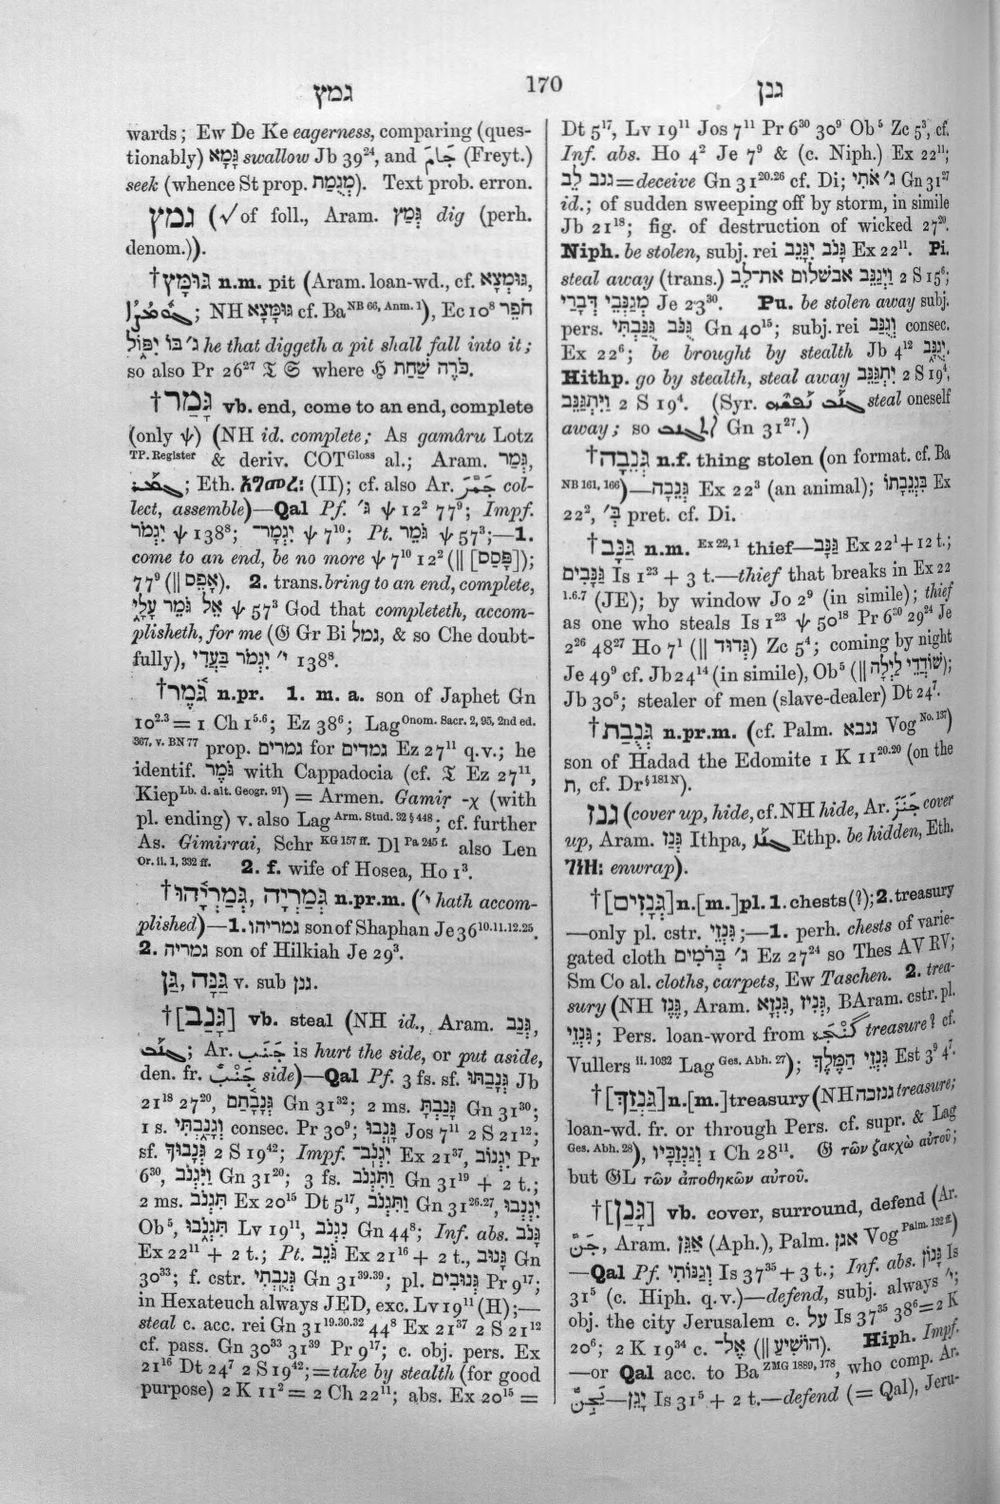 גמץ
170
גנן
wards; Ew De Ke eagerness, comparing (ques-
tionably) גָּמָא swallow Jb 39²⁴, and (Freyt.)
seek (whence St prop. מְגַמַּת). Text prob. erron.
גמץ (√of foll., Aram. גְּמַץ dig (perh.
denom.)).
†גּוּמָּץ n.m. pit (Aram. loan-wd., cf. גּוּמְצָא,
; NH גּוּמָּצָא cf. Ba NB 66, Anm. 1), Ec 10⁸ חֹפֵר
ג׳ בּוֹ יִפּוֹל he that diggeth a pit shall fall into it;
so also Pr 26²⁷ 𝔗 𝔖 where ℌ כֹּרֶה שַׁחַת.
†גָּמַר vb. end, come to an end, complete
(only ψ) (NH id. complete; As gamâru Lotz
TP. Register & deriv. COT Gloss al.; Aram. גְּמַר,
; Eth. ገመረ፡ (II); cf. also Ar. جَمَّرَ col-
lect, assemble)—Qal Pf. ג׳ ψ 12² 77⁹; Impf.
יִגְמֹר ψ 138⁸; יִגְמָר־ ψ 7¹⁰; Pt. גֹּמֵר ψ 57³;—1.
come to an end, be no more ψ 7¹⁰ 12² (‖ [פָּסַס]);
77⁹ (‖ אָפֵס). 2. trans. bring to an end, complete,
אֵל גֹּמֵר עָלָי ψ 57³ God that completeth, accom-
plisheth, for me (𝔊 Gr Bi גמל, & so Che doubt-
fully), י׳ יִגְמֹר בַּעֲדִי 138⁸.
†גֹּמֶר n.pr. 1. m. a. son of Japhet Gn
10²·³ = 1 Ch 1⁵·⁶; Ez 38⁶; Lag Onom. Sacr. 2, 95, 2nd ed.
367, v. BN 77 prop. גמרים for גמדים Ez 27¹¹ q.v.; he
identif. גֹּמֶר with Cappadocia (cf. 𝔗 Ez 27¹¹,
Kiep Lb. d. alt. Geogr. 91) = Armen. Gamir -χ (with
pl. ending) v. also Lag Arm. Stud. 32 § 448; cf. further
As. Gimirrai, Schr KG 157 ff. Dl Pa 245 f. also Len
Or. ii. 1, 332 ff. 2. f. wife of Hosea, Ho 1³.
†גְּמַרְיָה, גְּמַרְיָהוּ n.pr.m. (י׳ hath accom-
plished)—1. גמריהו son of Shaphan Je 36¹⁰·¹¹·¹²·²⁵.
2. גמריה son of Hilkiah Je 29³.
גַּן, גַּנָּה v. sub גנן.
†[גָּנַב] vb. steal (NH id., Aram. גְּנַב,
; Ar. جَنَبَ is hurt the side, or put aside,
den. fr. جَنْبٌ side)—Qal Pf. 3 fs. sf. גְּנָבַתּוּ Jb
21¹⁸ 27²⁰, גְּנָבָתַם Gn 31³²; 2 ms. גָּנַבְתָּ Gn 31³⁰;
1 s. וְגָנַבְתִּי consec. Pr 30⁹; גָּנְבוּ Jos 7¹¹ 2 S 21¹²;
sf. גְּנָבוּךָ 2 S 19⁴²; Impf. יִגְנֹב־ Ex 21³⁷, יִגְנוֹב Pr
6³⁰, וַיִּגְנֹב Gn 31²⁰; 3 fs. וַתִּגְנֹב Gn 31¹⁹ + 2 t.;
2 ms. תִּגְנֹב Ex 20¹⁵ Dt 5¹⁷, וַתִּגְנֹב Gn 31²⁶·²⁷, יִגְנְבוּ
Ob⁵, תִּגְנֹבוּ Lv 19¹¹, נִגְנֹב Gn 44⁸; Inf. abs. גָּנֹב
Ex 22¹¹ + 2 t.; Pt. גֹּנֵב Ex 21¹⁶ + 2 t., גָּנוּב Gn
30³³; f. cstr. גְּנֻבְתִי Gn 31³⁹·³⁹; pl. גְּנוּבִים Pr 9¹⁷;
in Hexateuch always JED, exc. Lv 19¹¹ (H);—
steal c. acc. rei Gn 31¹⁹·³⁰·³² 44⁸ Ex 21³⁷ 2 S 21¹²
cf. pass. Gn 30³³ 31³⁹ Pr 9¹⁷; c. obj. pers. Ex
21¹⁶ Dt 24⁷ 2 S 19⁴²;=take by stealth (for good
purpose) 2 K 11² = 2 Ch 22¹¹; abs. Ex 20¹⁵ =
Dt 5¹⁷, Lv 19¹¹ Jos 7¹¹ Pr 6³⁰ 30⁹ Ob⁵ Zc 5³, cf.
Inf. abs. Ho 4² Je 7⁹ & (c. Niph.) Ex 22¹¹;
גנב לֵב=deceive Gn 31²⁰·²⁶ cf. Di; ג׳ אֹתִי Gn 31²⁷
id.; of sudden sweeping off by storm, in simile
Jb 21¹⁸; fig. of destruction of wicked 27²⁰.
Niph. be stolen, subj. rei גָּנֹב יִגָּנֵב Ex 22¹¹. Pi.
steal away (trans.) וַיְגַנֵּב אבשׁלום את־לֵב 2 S 15⁶;
מְגַנְּבֵי דְבָרַי Je 23³⁰. Pu. be stolen away subj.
pers. גֻּנֹּב גֻּנַּבְתִּי Gn 40¹⁵; subj. rei וְגֻנַּב consec.
Ex 22⁶; be brought by stealth Jb 4¹² יְגֻנָּב.
Hithp. go by stealth, steal away יִתְגַּנֵּב 2 S 19⁴,
וַיִּתְגַּנֵּב 2 S 19⁴. (Syr. steal oneself
away; so Gn 31²⁷.)
†גְּנֵבָה n.f. thing stolen (on format. cf. Ba
NB 161, 166)—גְּנֵבָה Ex 22³ (an animal); בִּגְנֵבָתוֹ Ex
22², בְּ׳ pret. cf. Di.
†גַּנָּב n.m. Ex 22, 1 thief—גַּנָּב Ex 22¹ + 12 t.;
גַּנָּבִים Is 1²³ + 3 t.—thief that breaks in Ex 22
1.6.7 (JE); by window Jo 2⁹ (in simile); thief
as one who steals Is 1²³ ψ 50¹⁸ Pr 6³⁰ 29²⁴ Je
2²⁶ 48²⁷ Ho 7¹ (‖ גְּדוּד) Zc 5⁴; coming by night
Je 49⁹ cf. Jb 24¹⁴ (in simile), Ob⁵ (‖ שׁוֹדְדֵי לַיְלָה);
Jb 30⁵; stealer of men (slave-dealer) Dt 24⁷.
†גְּנֻבַת n.pr.m. (cf. Palm. גנבא Vog No. 137)
son of Hadad the Edomite 1 K 11²⁰·²⁰ (on the
ת, cf. Dr § 181 N).
גנז (cover up, hide, cf. NH hide, Ar. جَنَزَ cover
up, Aram. גְּנַז Ithpa, Ethp. be hidden, Eth.
ገነዘ፡ enwrap).
†[גְּנָזִים] n.[m.]pl. 1. chests(?); 2. treasury
—only pl. cstr. גִּנְזֵי;—1. perh. chests of varie-
gated cloth ג׳ בְּרֹמִים Ez 27²⁴ so Thes AV RV;
Sm Co al. cloths, carpets, Ew Taschen. 2. trea-
sury (NH גְּנָז, Aram. גִּנְזָא, גְּנִיז, BAram. cstr. pl.
גִּנְזֵי; Pers. loan-word from treasure? cf.
Vullers ii. 1032 Lag Ges. Abh. 27); גִּנְזֵי הַמֶּלֶךְ Est 3⁹ 4⁷.
†[גַּנְזַךְ] n.[m.] treasury (NH גנזכה treasure;
loan-wd. fr. or through Pers. cf. supr. & Lag
Ges. Abh. 28), וְגַנְזַכָּיו 1 Ch 28¹¹. 𝔊 τῶν ζακχὼ αὐτοῦ;
but 𝔊L τῶν ἀποθηκῶν αὐτοῦ.
†[גָּנַן] vb. cover, surround, defend (Ar.
جَنَّ, Aram. אַגֵּן (Aph.), Palm. אגן Vog Palm. 132 ff.)
—Qal Pf. וְגַנּוֹתִי Is 37³⁵ + 3 t.; Inf. abs. גָּנוֹן Is
31⁵ (c. Hiph. q.v.)—defend, subj. always י׳;
obj. the city Jerusalem c. על Is 37³⁵ 38⁶ = 2 K
20⁶; 2 K 19³⁴ c. אל־ (‖ הוֹשִׁיעַ). Hiph. Impf.
—or Qal acc. to Ba ZMG 1889, 178, who comp. Ar.
يَجِنُّ—יָגֵן Is 31⁵ + 2 t.—defend (= Qal), Jeru-